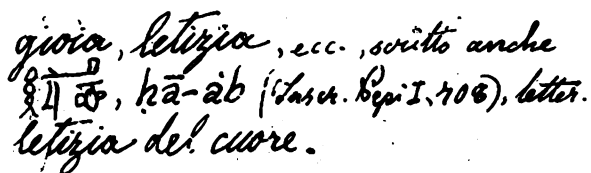 gioia, letizia, ecc., scritto anche
, ḥā-àb (Inscr. Pepi I, 408), letter.
letizia del cuore.